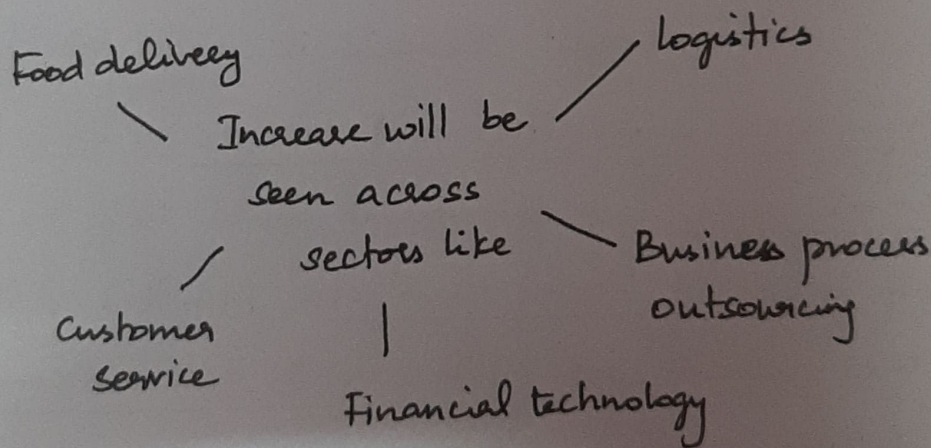 Food delivery
Logistics
Increase will be
seen across
sectors like
Business process
outsourcing
Customer
service
Financial technology